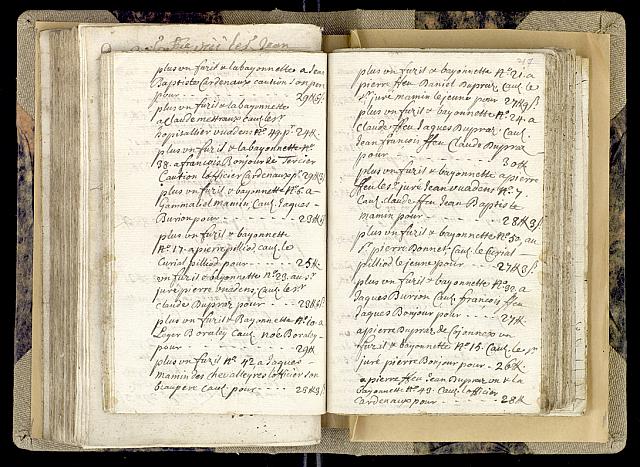 plus vn fuzil & la bayonnette a Jean
Baptiste Cardenaux caution son pere
pour
plus vn fuzil & la bayonnette
a claude mettraux caut. le sr
hospitallier vuadens No. 49 p. 24
plus vn fuzil & la bayonnette No.
38. a françois Bonjour de Tercier
Caution l'officier Cardenaux p. 29
plus vn fuzil & bayonnette No. 6. a
Gammaliel mamin Caut. Jaques
Burion pour 23
plus vn fuzil & bayonnette
No. 17. a pierre pilliod caut. le
Curial pilliod pour 25
vn fuzil & bayonnette No. 23. au sr
juré pierre vuadens Caut. le sr
claude Dupraz pour 28
plus vn fuzil & Bayonnette No. 10. a
Leger Boraley Caut. noé Boraley
pour 29
plus vn fuzil No. 42 a Jaques
mamin des chevalleyres l'officier son
beaupere caut. pour 23
plus vn fuzil & bayonnette No. 21. a
pierre ffeu Daniel Dupraz Caut. le
sr juré mamin le jeune pour 27
plus vn fuzil & bayonnette No. 24. a
claude ffeu Jaques Dupraz Caut.
Jean françois ffeu Claude Dupraz
pour 30
plus vn fuzil & bayonnette a pierre
ffeu le sr juré Jean vuadens No. 7
Caut. claude ffeu Jean Baptiste
mamin pour 28
plus vn fuzil & bayonnette No. 50. au
sr pierre Bonnet Caut. le Curial
pilliod le jeune pour 27
plus vn fuzil & bayonnette No. 30. a
Jaques Burion Caut. françois ffeu
Jaques Bonjour pour 27
a pierre Dupraz de Cojonnex vn
fuzil & bayonnette No. 15. Caut. le sr
juré pierre Bonjour pour 26
a pierre ffeu Jean Dupraz vn & la
bayonnette No. 43. Caut. l'officier
Cardenaux pour 28